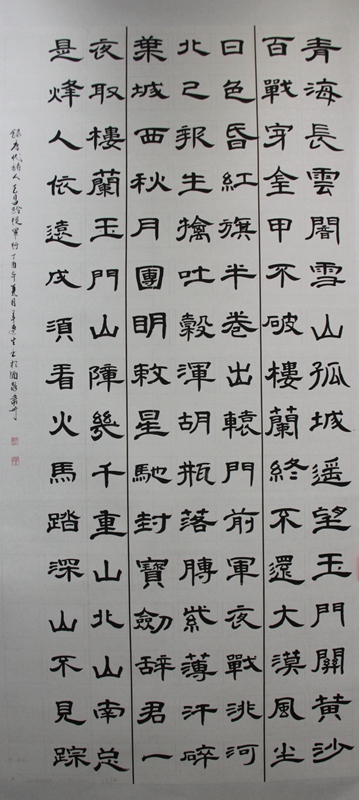 青海長雲闇雪山孤城遥望玉門關黃沙
百戰穿金甲不破樓蘭終不還大漠風尘
日色昏紅旗半卷出轅門前軍夜戰洮河
北已報生擒吐穀渾胡瓶落膊紫薄汗碎
葉城西秋月團明敕星馳封寶劍辞君一
夜取樓蘭玉門山陣幾千重山北山南总
是烽人依遠戍須看火馬踏深山不見踪
錄唐代詩人王昌齡從軍行丁酉年夏月